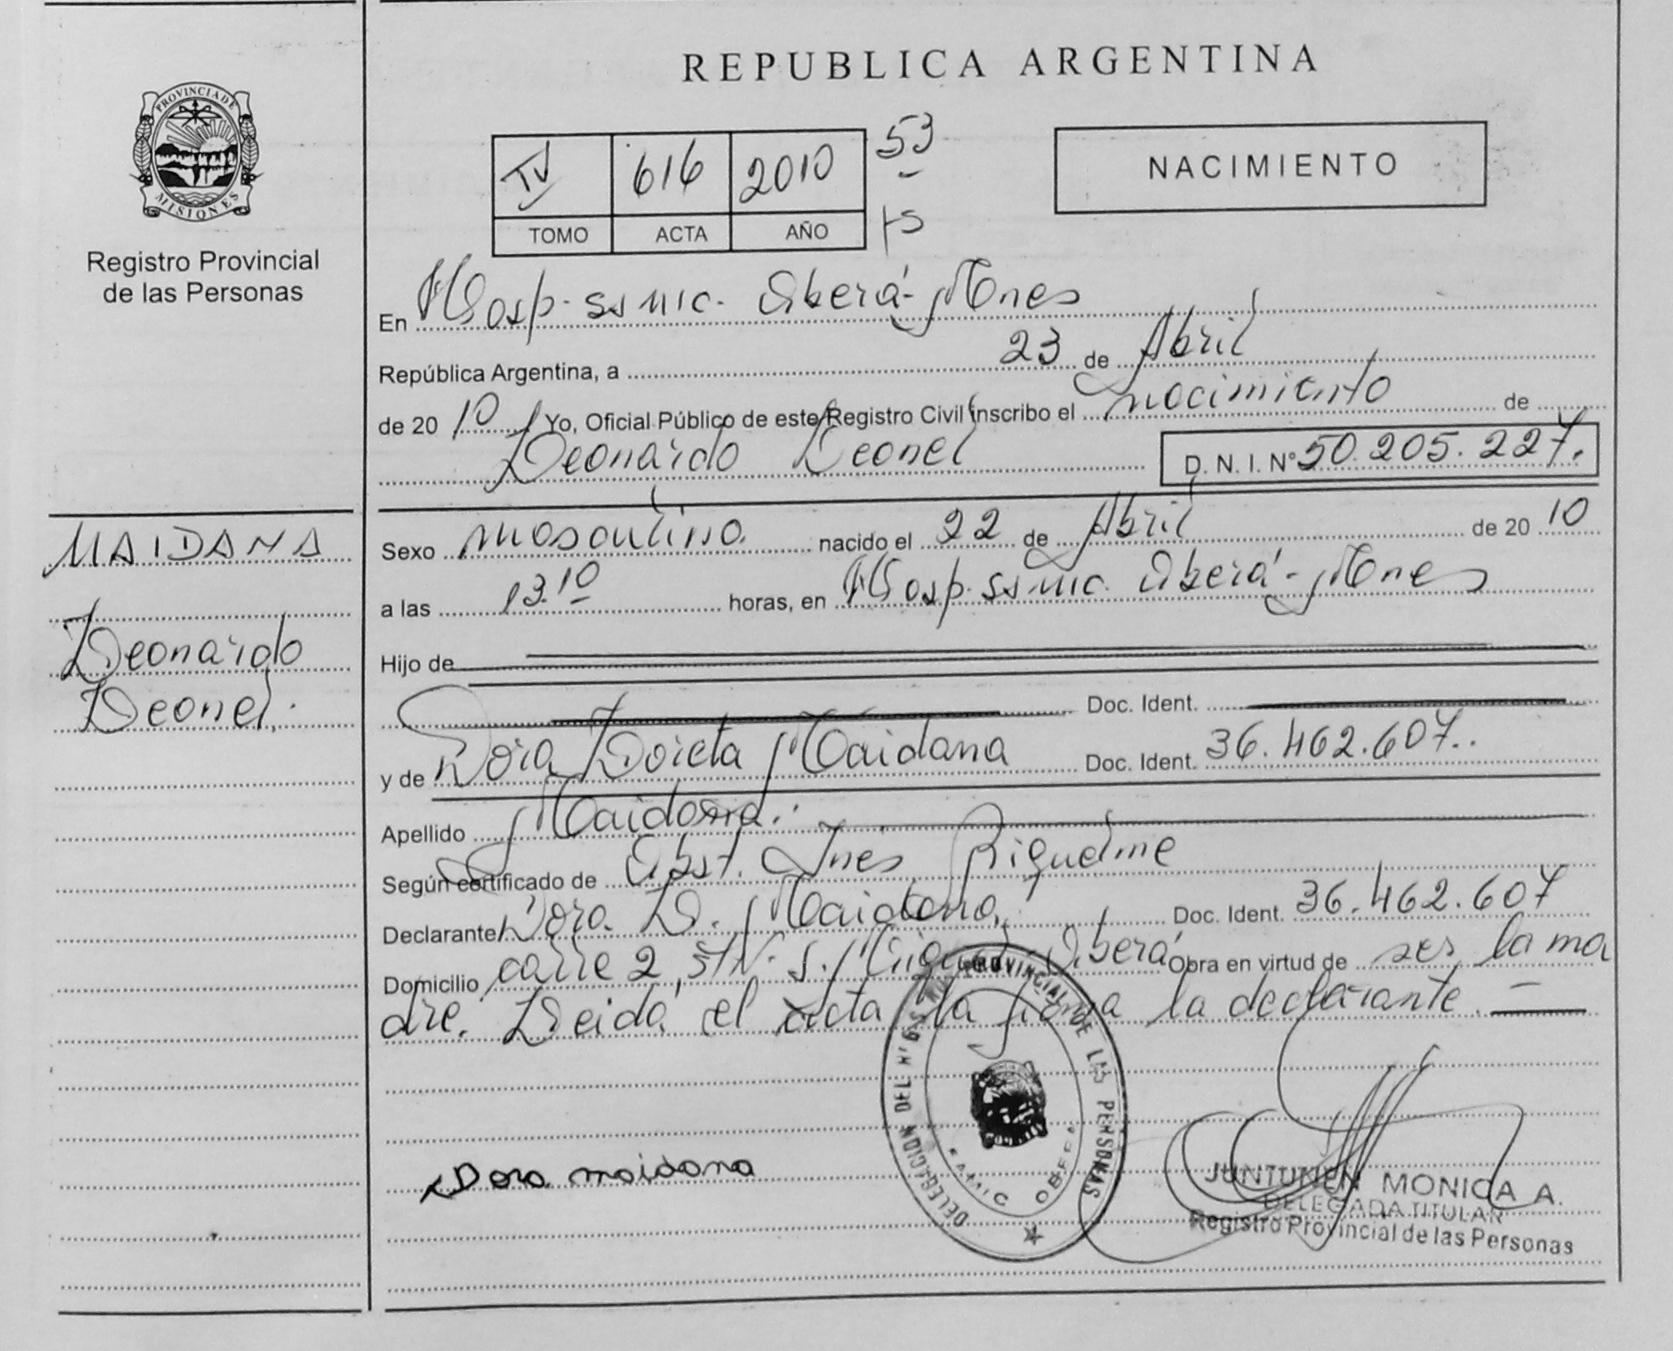 REPUBLICA ARGENTINA
PROVINCIA DE
MISIONES
Registro Provincial
de las Personas
IV 616 2010 53
TOMO ACTA AÑO
NACIMIENTO
En Hosp. ss mic. Oberá - Mnes
República Argentina, a 23 de Abril
de 20 10 Yo, Oficial Público de este Registro Civil inscribo el nacimiento de
Leonardo Leonel D. N. I. Nº 50.205.227.
MAIDANA
Leonardo
Leonel.
Sexo masculino. nacido el 22 de Abril de 20 10
a las 13.10 horas, en Hosp. ss mic. Oberá - Mnes
Hijo de
Doc. Ident.
y de Dora Loreta Maidana Doc. Ident. 36.462.607.
Apellido Maidana.
Según certificado de Obst. Ines Riquelme
Declarante Dora L. Maidana. Doc. Ident. 36.462.607
Domicilio calle 2 S/N. S. Miguel Oberá Obra en virtud de ser la ma
dre. Leida el acta la firma la declarante.
Dora maidana
PROVINCIAL DE LAS PERSONAS
DELEGACION DEL
SAMIC OBERA
JUNTUNEN MONICA A.
DELEGADA TITULAR
Registro Provincial de las Personas